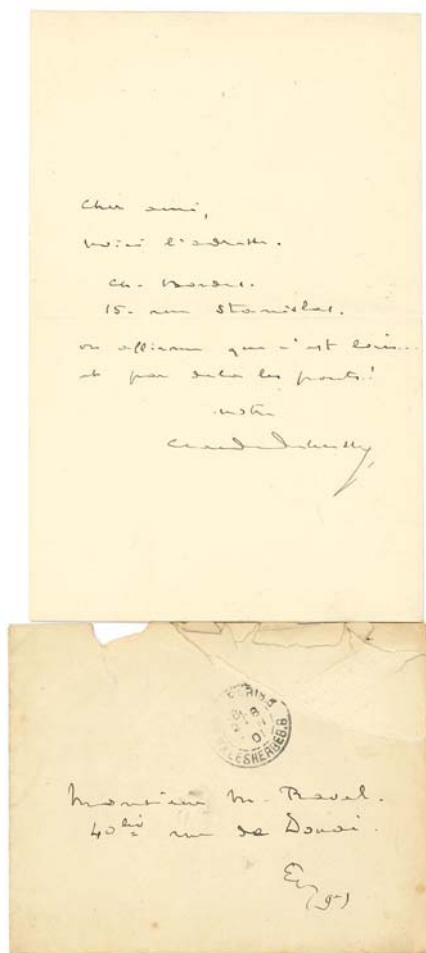 Cher ami,
voici l'adresse.
Ch. Bordes.
15. rue Stanislas.
on affirme que c'est loin...
et par delà les ponts!
votre
Claude Debussy
PARIS 8
MALESHERBES. 8
Monsieur M. Ravel.
40 bis rue de Douai.